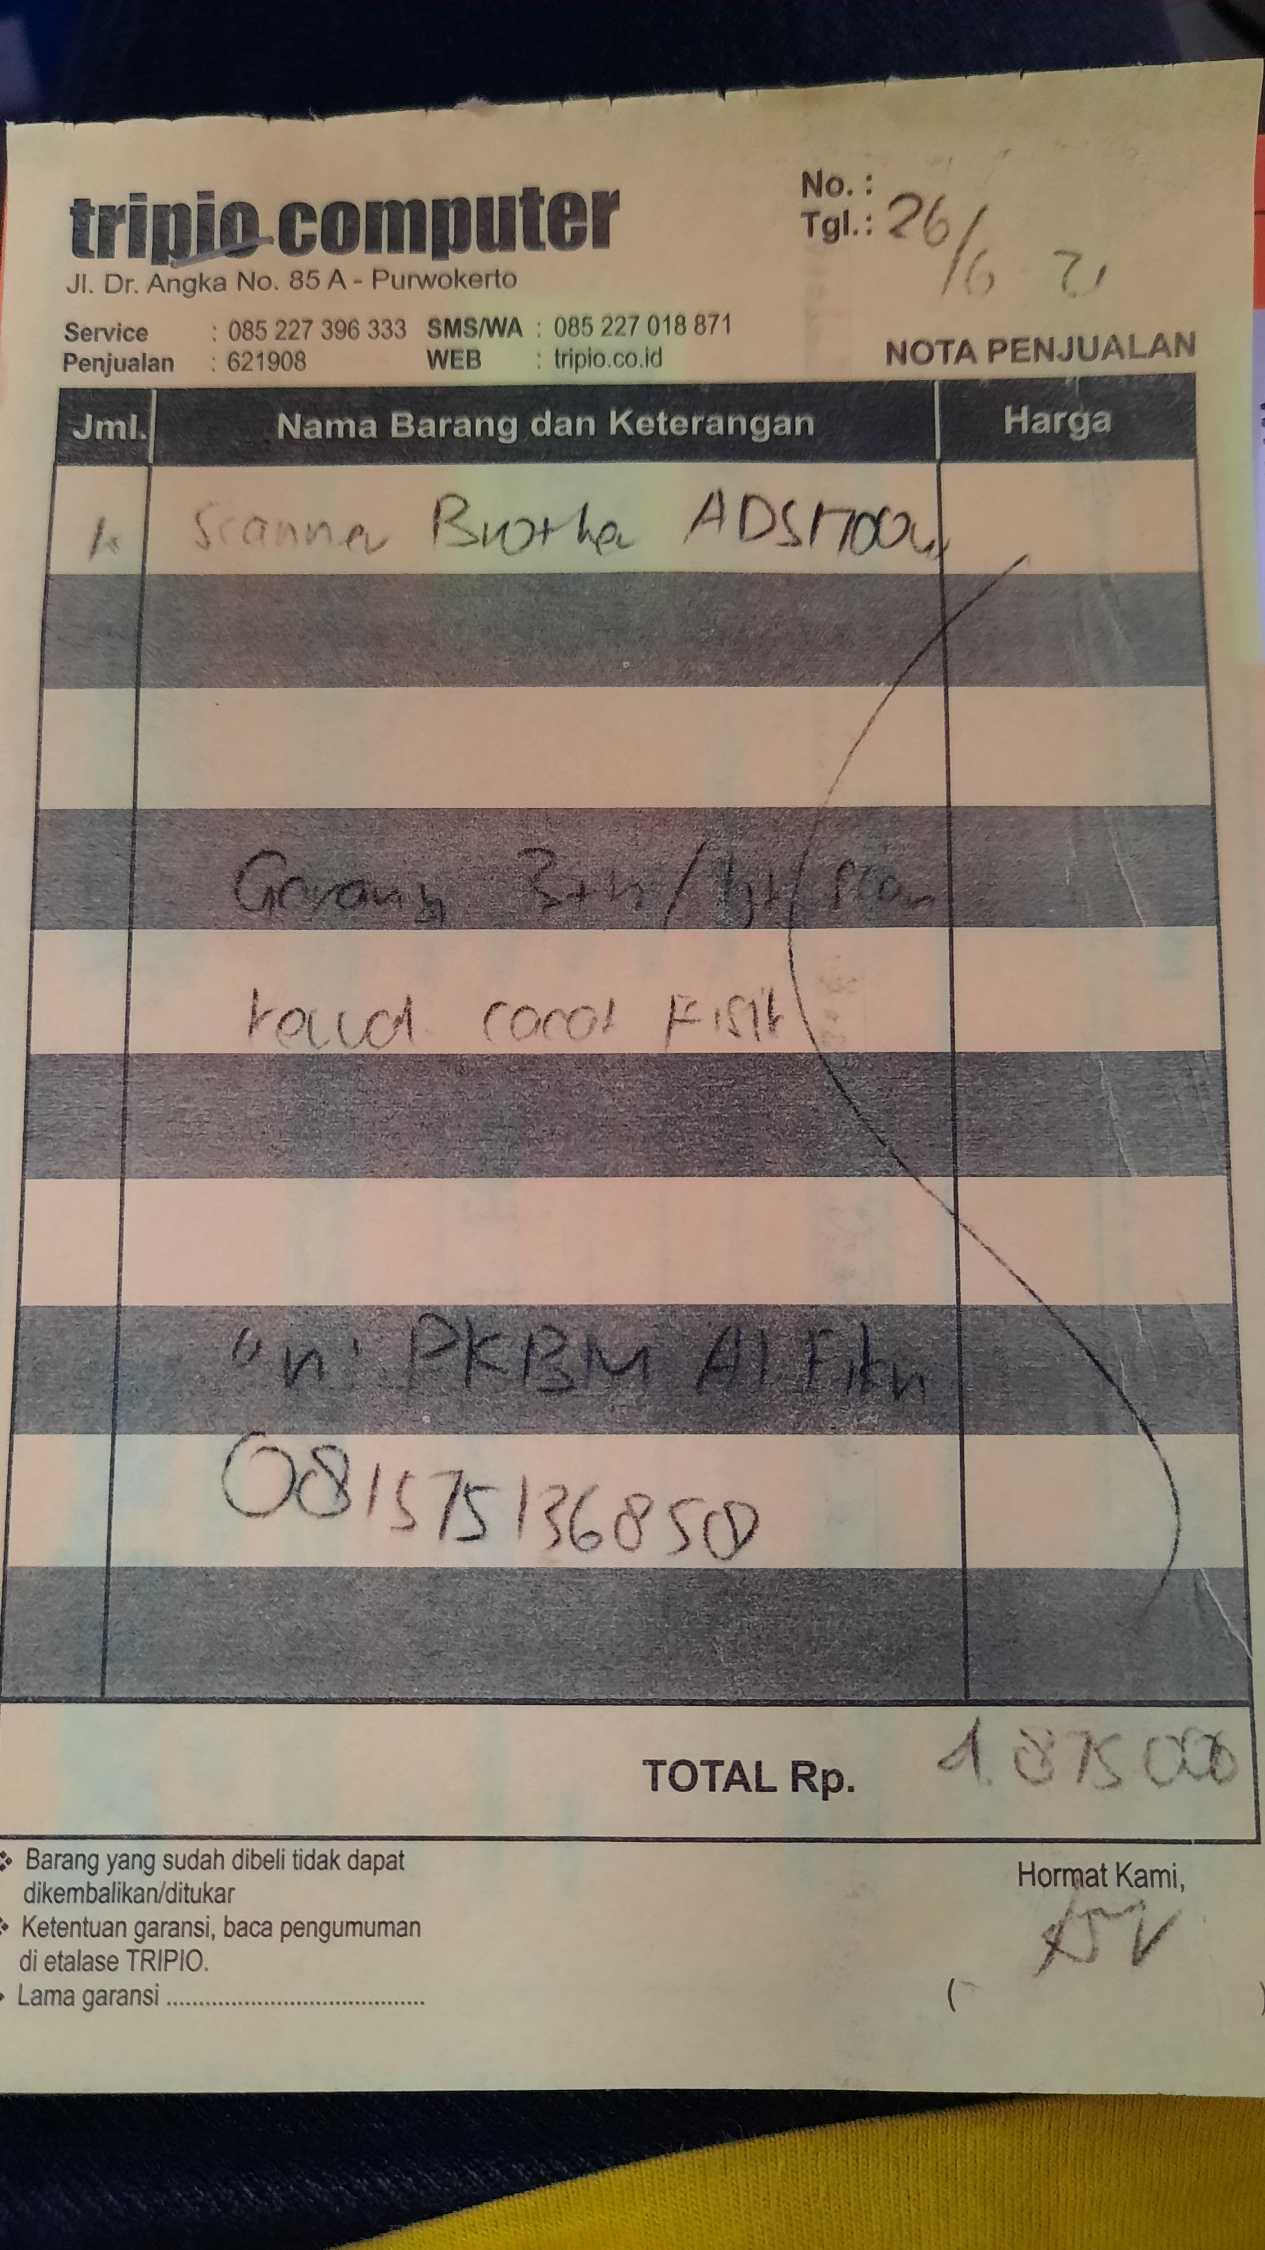 tripio computer
No. :
Tgl.: 26/6 21
Jl. Dr. Angka No. 85 A - Purwokerto
Service : 085 227 396 333 SMS/WA : 085 227 018 871
Penjualan : 621908 WEB : tripio.co.id
NOTA PENJUALAN
Jml. Nama Barang dan Keterangan Harga
1 Scanner Brother ADS1700w
Garansi 3th /
kecual cacat Fisik
"n" PKBM Al Fikri
081575136850
TOTAL Rp. 4.875000
Barang yang sudah dibeli tidak dapat
dikembalikan/ditukar
Ketentuan garansi, baca pengumuman
di etalase TRIPIO.
Lama garansi ........................................
Hormat Kami,
( )